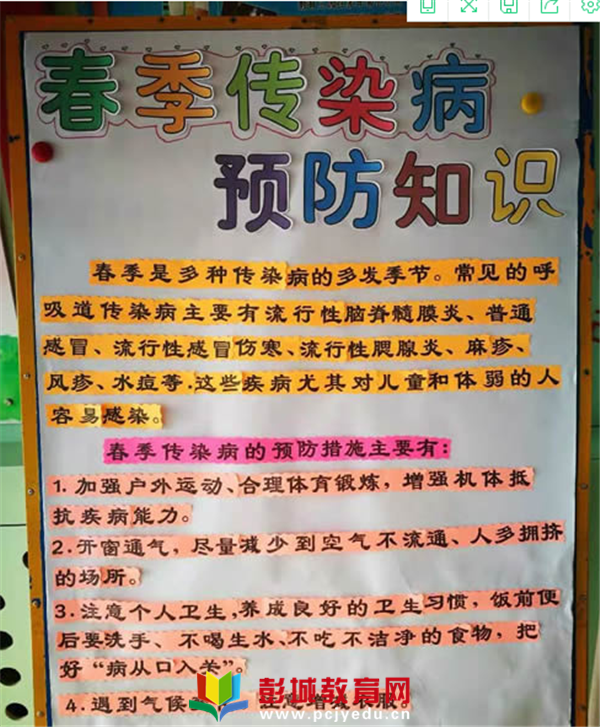 春季传染病
预防知识
春季是多种传染病的多发季节。常见的呼
吸道传染病主要有流行性脑脊髓膜炎、普通
感冒、流行性感冒伤寒、流行性腮腺炎、麻疹、
风疹、水痘等.这些疾病尤其对儿童和体弱的人
容易感染。
春季传染病的预防措施主要有:
1.加强户外运动、合理体育锻炼，增强机体抵
抗疾病能力。
2.开窗通气，尽量减少到空气不流通、人多拥挤
的场所。
3.注意个人卫生,养成良好的卫生习惯，饭前便
后要洗手、不喝生水、不吃不洁净的食物，把
好“病从口入关”。
4.遇到气候 注意增减衣服。
彭城教育网
www.pcjyedu.cn